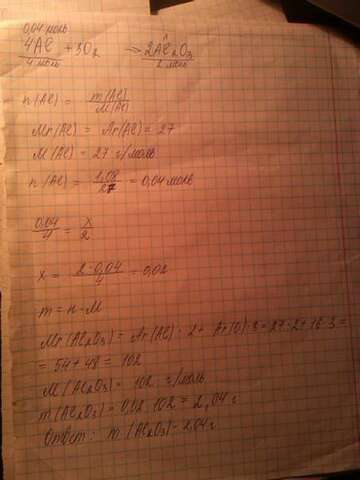 0,04 моль
4Al + 3O2 → 2Al2O3
4 моль 2 моль
n(Al) = m(Al) / M(Al)
Mr(Al) = Ar(Al) = 27
M(Al) = 27 г/моль
n(Al) = 1,08 / 27 = 0,04 моль
0,04 / 4 = x / 2
x = 2·0,04 / 4 = 0,02
m = n·M
Mr(Al2O3) = Ar(Al)·2 + Ar(O)·3 = 27·2 + 16·3 =
= 54 + 48 = 102
M(Al2O3) = 102 г/моль
m(Al2O3) = 0,02·102 = 2,04 г
Ответ: m(Al2O3) = 2,04 г